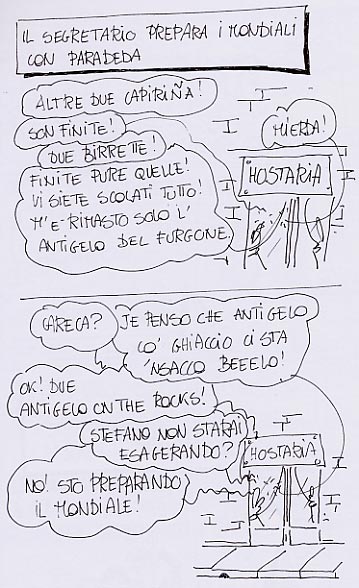 IL SEGRETARIO PREPARA I MONDIALI
CON PARADEDA
ALTRE DUE CAPIRIÑA!
SON FINITE!
MIERDA!
DUE BIRRETTE!
FINITE PURE QUELLE!
VI SIETE SCOLATI TUTTO!
M'E' RIMASTO SOLO L'
ANTIGELO DEL FURGONE.
HOSTARIA
CARECA?
JE PENSO CHE ANTIGELO
CO' GHIACCIO CI STA
'NSACCO BEEELO!
OK! DUE
ANTIGELO ON THE ROCKS!
STEFANO NON STARAI
ESAGERANDO?
HOSTARIA
NO! STO PREPARANDO
IL MONDIALE!